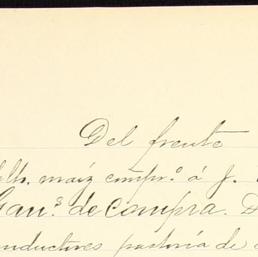 Del frente
hlts. maiz compr.º á J.
Gan.s de Compra. D
nductores pastoría de